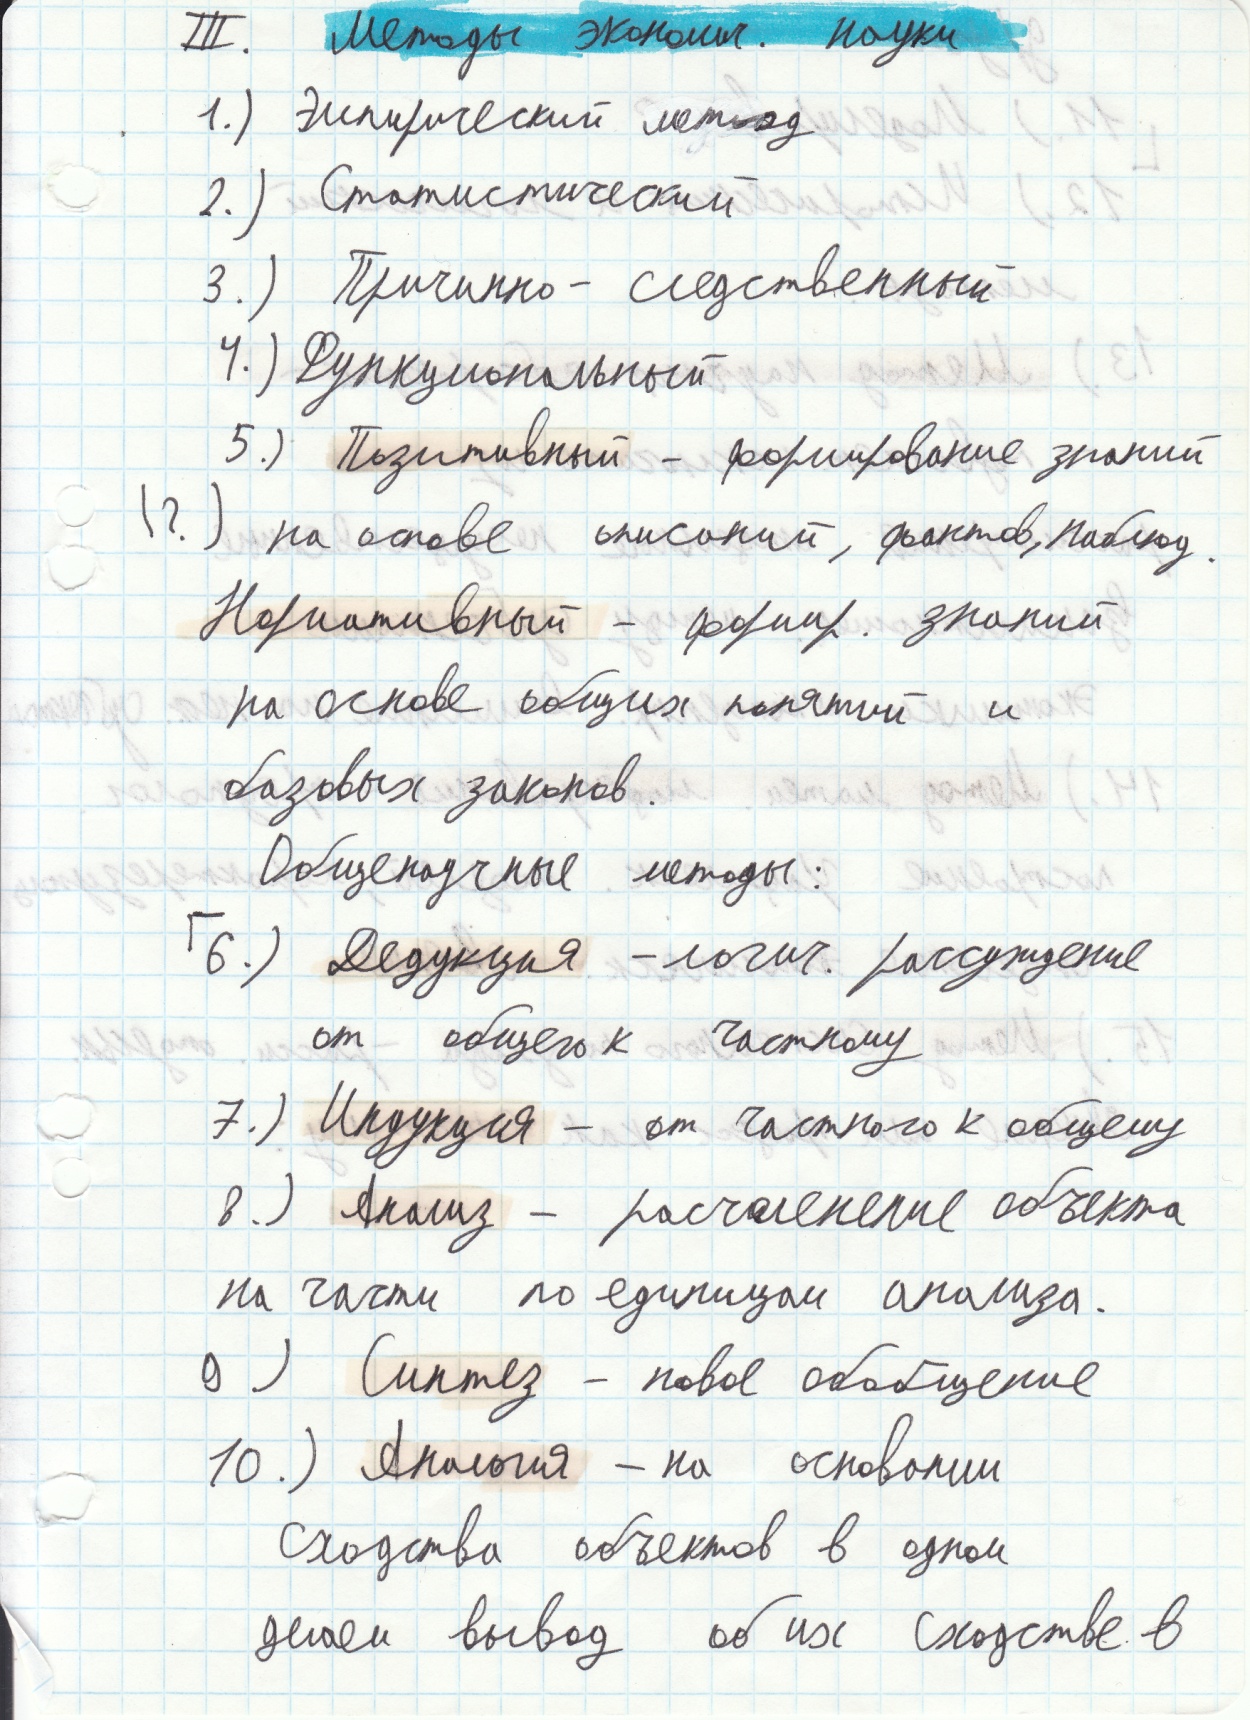 III. Методы эконом. науки
1.) Эмпирический метод
2.) Статистический
3.) Причинно - следственный
4.) Функциональный
5.) Позитивный - формирование знаний
(?.) на основе описаний, фактов, наблюд.
Нормативный - формир. знаний
на основе общих понятий и
базовых законов.
Общенаучные методы:
6.) Дедукция - логич. рассуждение
от общего к частному
7.) Индукция - от частного к общему
8.) Анализ - расчленение объекта
на части по единицам анализа.
9.) Синтез - новое обобщение
10.) Аналогия - на основании
сходства объектов в одном
делаем вывод об их сходстве в